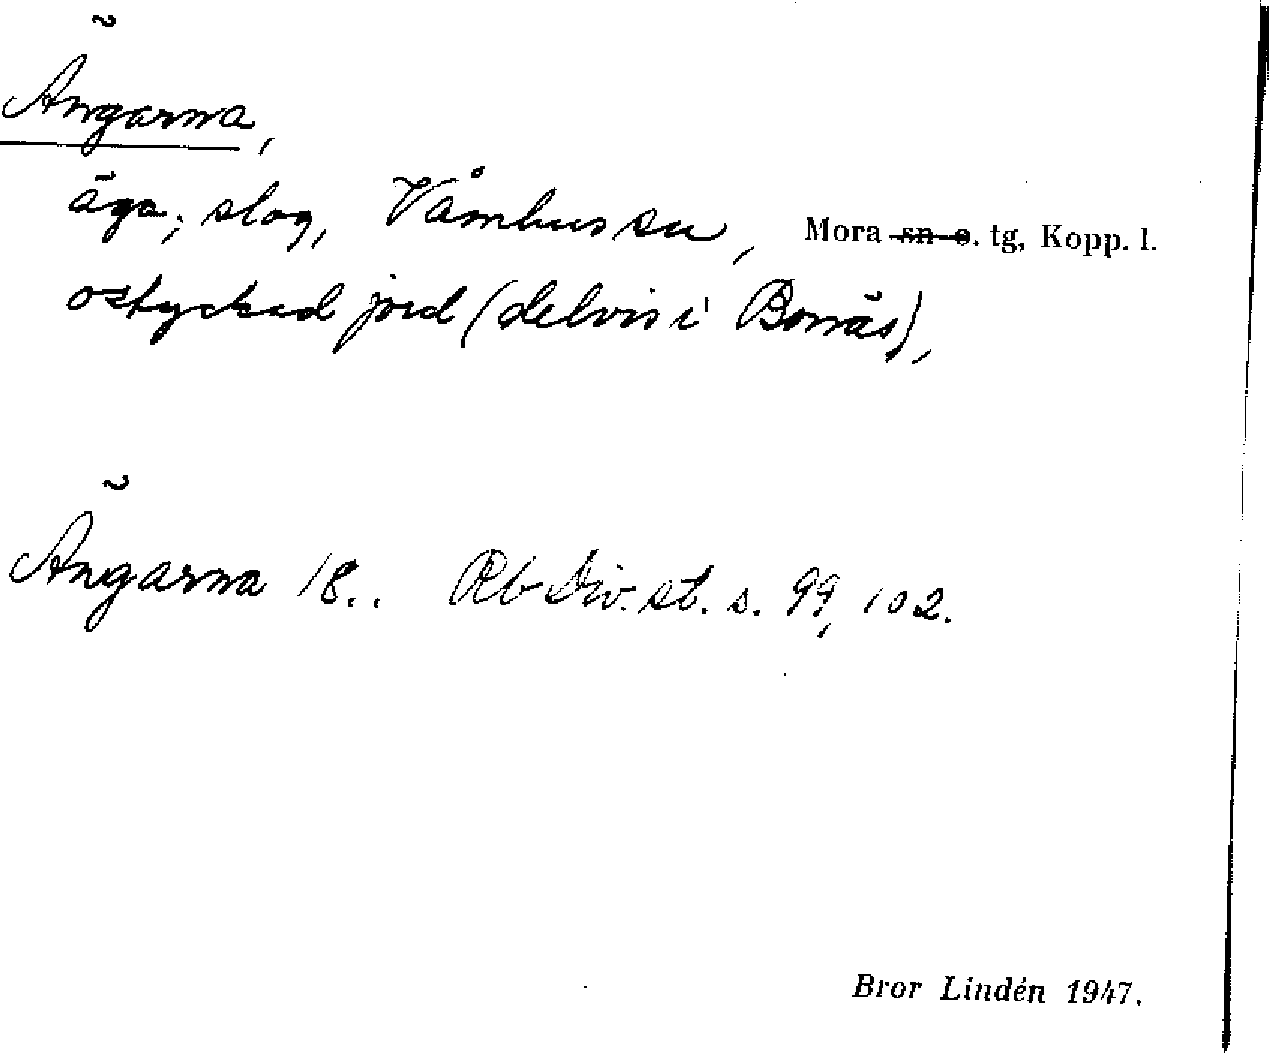 Ängarna,
äga, slog, Våmhus sn, Mora ~~sn o.~~ tg, Kopp. l.
ostyckad jord (delvis i Bonäs),
Ängarna 18.. Rb Div. st. s. 99, 102.
Bror Lindén 1947.